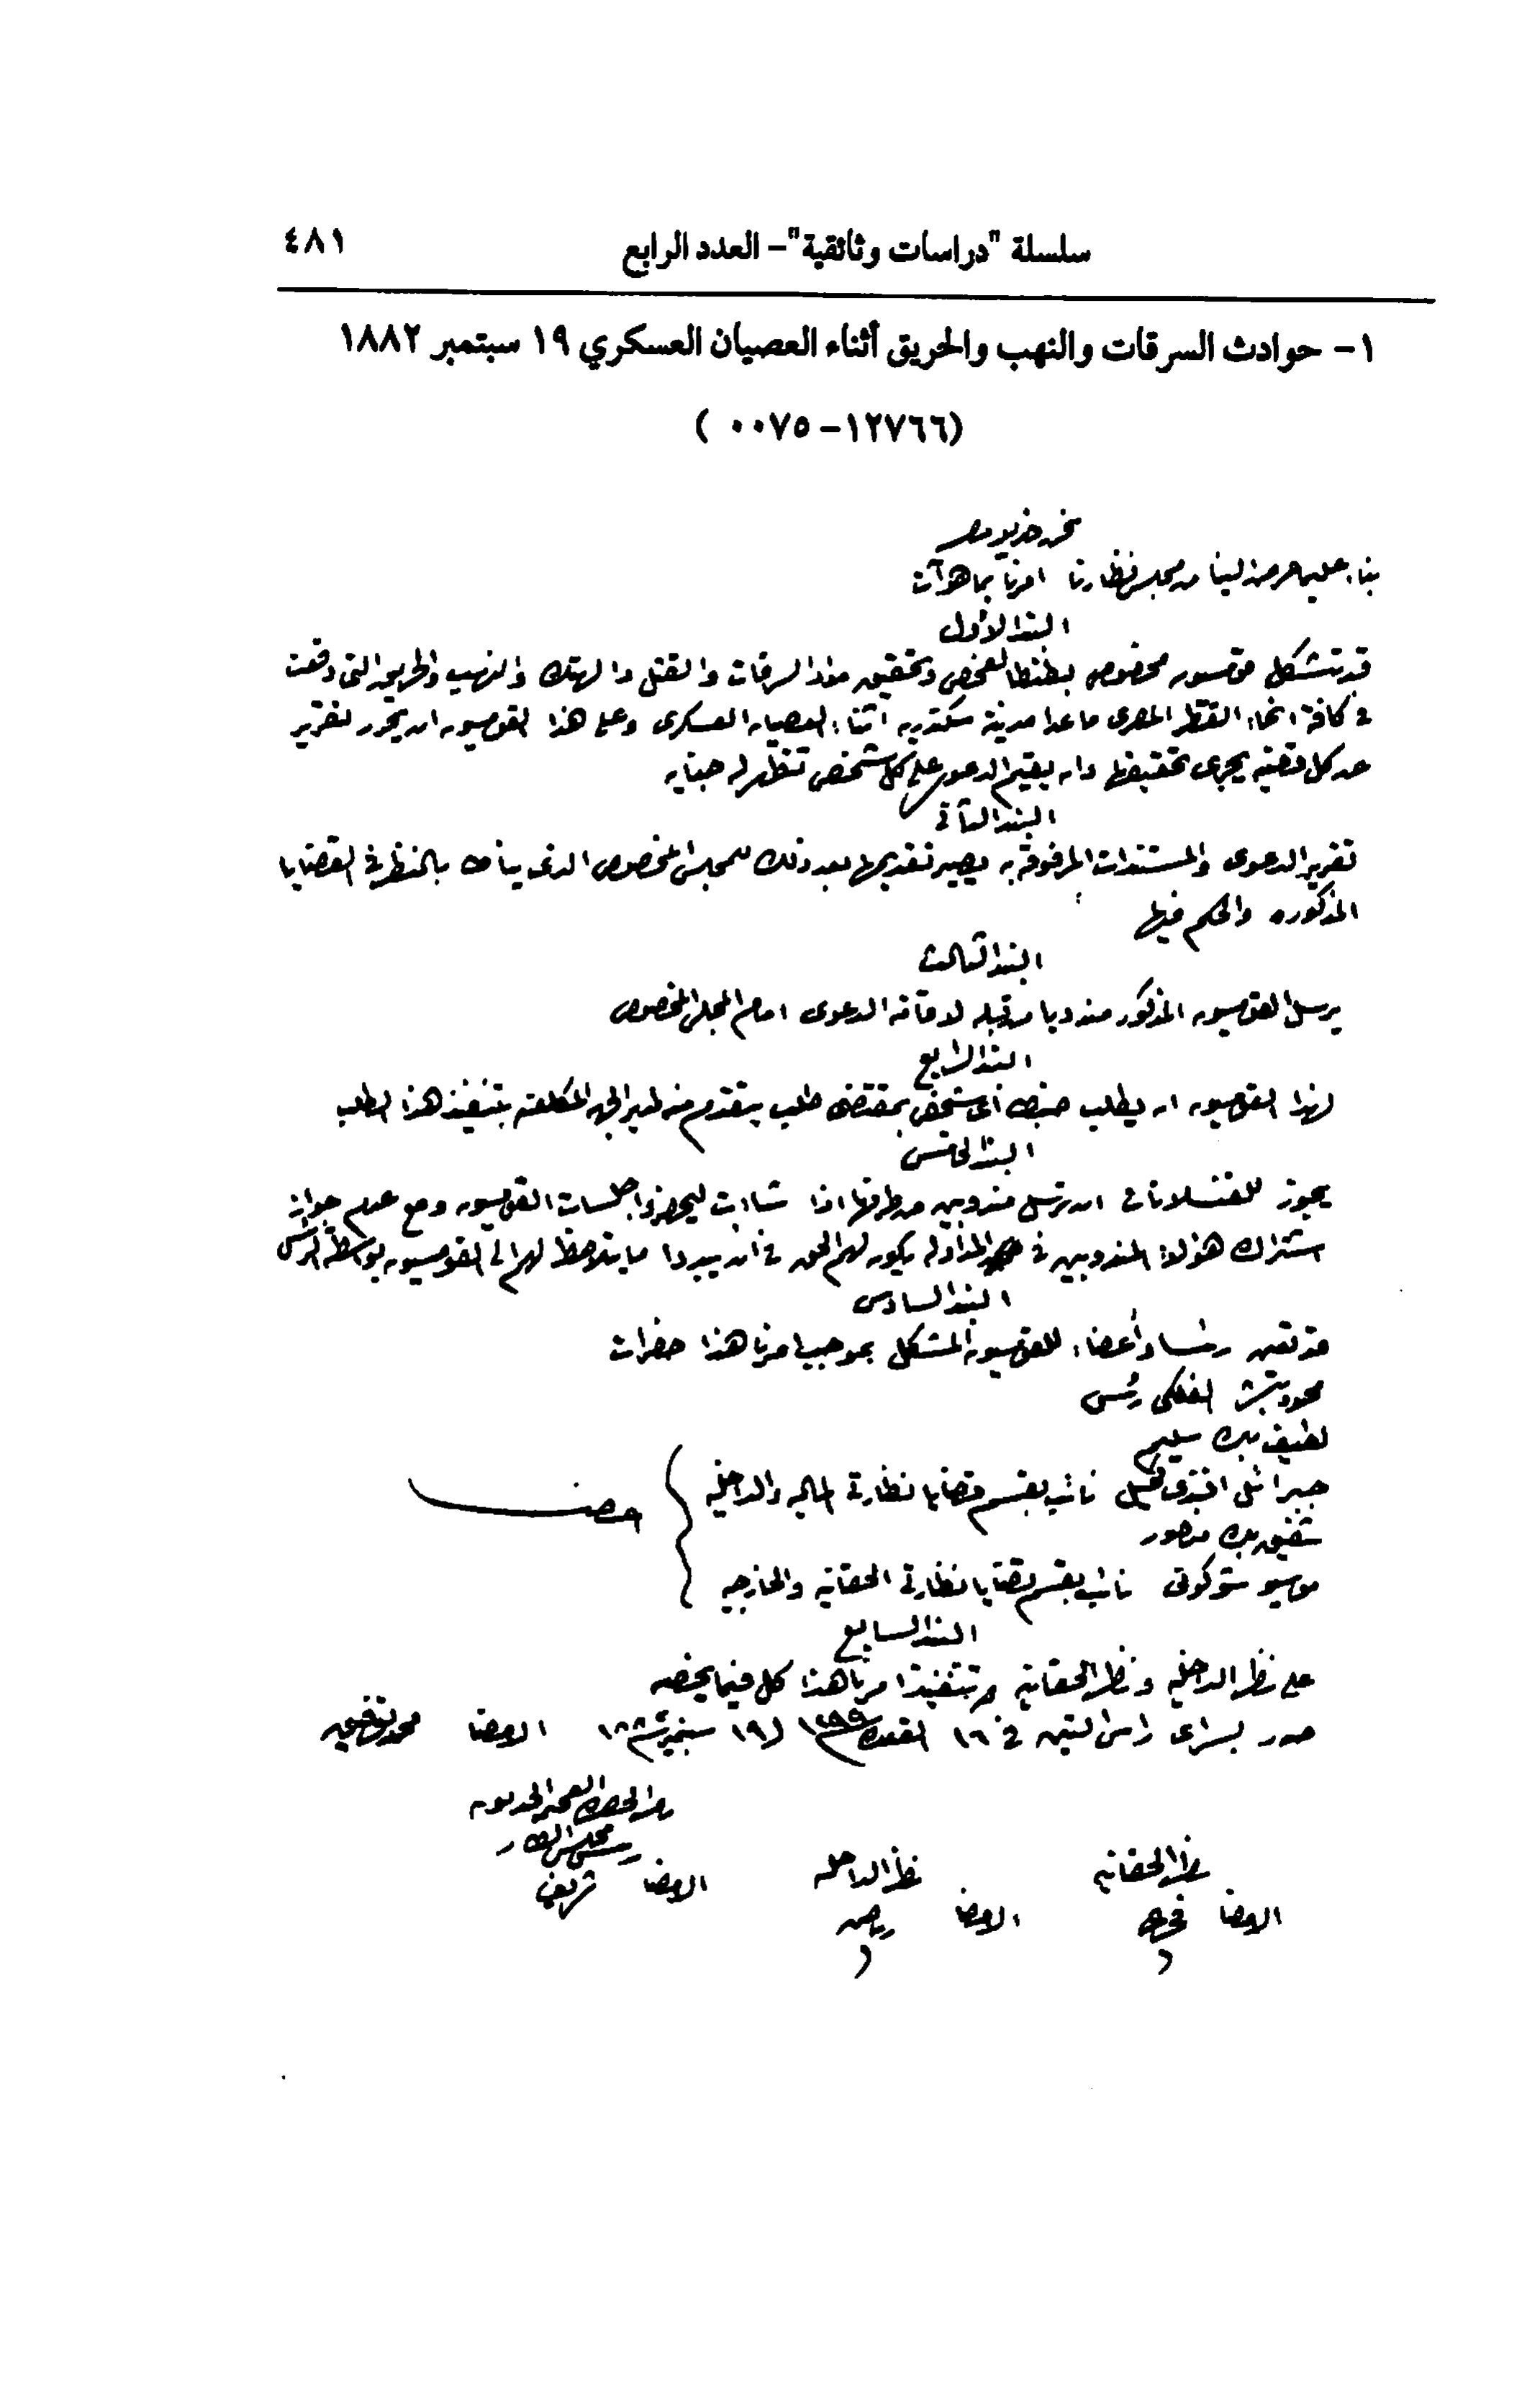 سلسلة "دراسات وثائقية"- العدد الرابع ٤٨١
١- حوادث السرقات والنهب والحريق أثناء العصيان العسكري ١٩ سبتمبر ١٨٨٢
(١٢٧٦٦-٠٠٧٥)
نحن خديو مصر
بناء على ما عرض الينا من مجلس نظارنا امرنا بما هو آت
البند الأول
قد تشكل قومسيون مخصوص بطنطا لفحص وتحقيق مواد السرقات والقتل والهتك والنهب والحريق التى وقعت
فى كافة انحاء القطر المصرى ماعدا مدينة سكندريه أثناء العصيان العسكرى وعلى هذا القومسيون ان يحرر تقرير
عن كل قضيه يجرى تحقيقها وان يقيم الدعوى على كل شخص تظهر له جنايه
البند الثانى
تقرير الدعوى والمستندات المرفوقه به يصير تقديمها بعد ذلك للمجلس المخصوص الذى يناط بالنظر فى القضايا
المذكوره والحكم فيها
البند الثالث
يرسل القومسيون المذكور مندوبا من قبله لاقامة الدعوى امام المجلس المخصوص
البند الرابع
لهذا القومسيون ان يطلب ضبط أى شخص بمقتضى طلب يتقدم منه الجهه المكلفه بتنفيذ هذا الطلب
البند الخامس
يجوز للقنسلاتات ان ترسل مندوبين من طرفها اذا شاءت ليحضروا جلسات القومسيون ومع عدم جواز
اشتراك هؤلاء المندوبين فى المداوله يكون لهم الحق فى أن يبدوا ما يتلاحظ لهم الى القومسيون بواسطة الرئيس
البند السادس
قد تعين رئيسا وأعضاء للقومسيون المشكل بموجب امرنا هذا حضرات
محمود باشا الفلكى رئيس
لطيف بك سليم
جبرائيل افندى كحيل نائب بقسم قضايا نظارتى الماليه والداخليه
شفيق بك منصور
اعضا
موسيو نائب بقسم قضايا نظارتى الحقانيه والخارجيه
البند السابع
على ناظر الداخليه وناظر الحقانيه تنفيذ امرنا هذا كل فيما يخصه
صدر بسراى راس التين فى ١٦ القعده ١٢٩٩ (١٩ سبتمبر ١٨٨٢ الامضا محمد توفيق
بامر الحضره الفخيمه الخديويه
رئيس مجلس النظار
ناظر الحقانيه ناظر الداخليه
الامضا فخرى الامضا رياض الامضا شريف